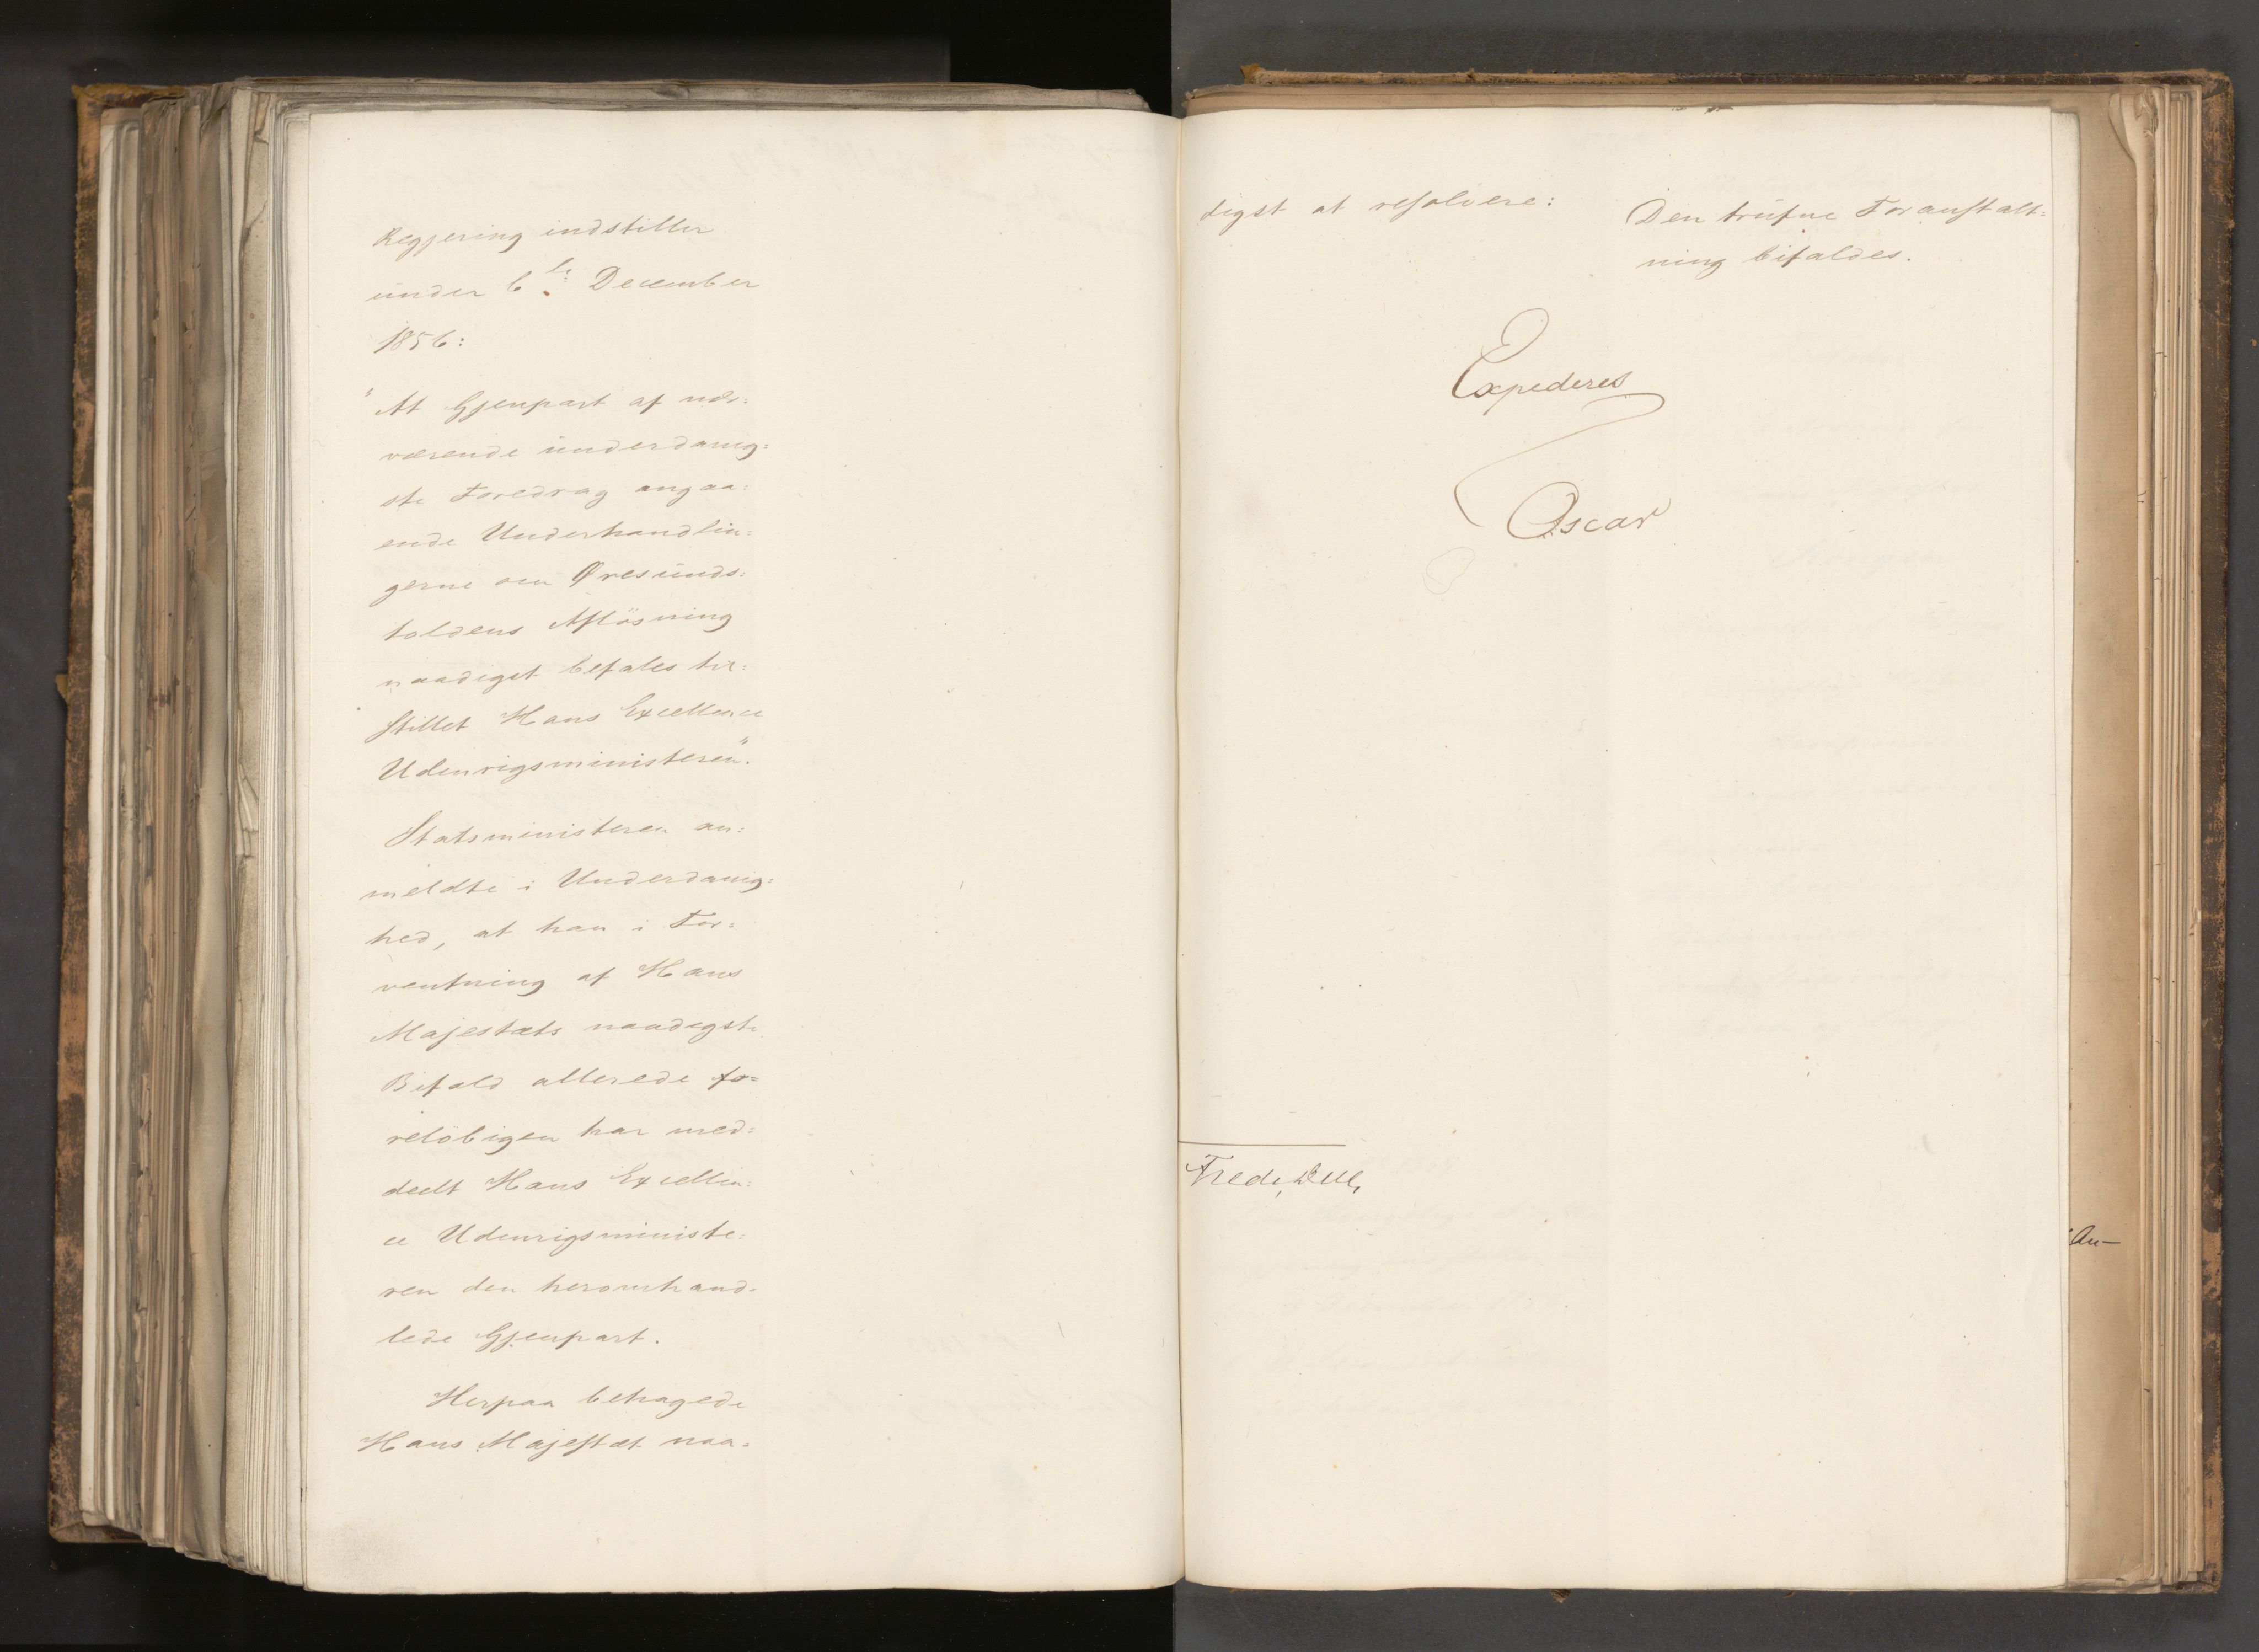 Regjering indstiller
under 6te December
1856:
"At Gjenpart af nær=
værende underdanig=
ste Foredrag angaa=
ende Underhandlin=
gerne om Øresunds=
toldens Aflösning
naadigst befales til=
stillet Hans Excellence
Udenrigsministeren".
Statsministeren an=
meldte i Underdanig=
hed, at han i For=
ventning af Hans
Majestæts naadigste
Bifald allerede fo=
relöbigen har med=
deelt Hans Excellen=
ce Udenrigsministe=
ren den heromhand=
lede Gjenpart.
Herpaa behagede
Hans Majestæt naa=
digst at resolvere:
Den trufne Foranstalt=
ning bifaldes.
Expederes
Oscar